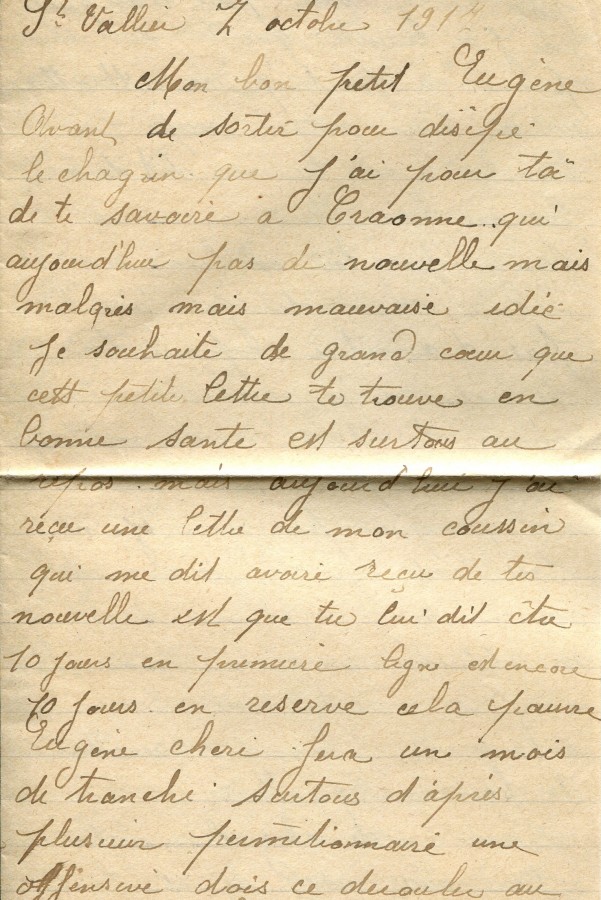 St Vallier 7 octobre 1917.
Mon bon petit Eugène
Avant de sortir pour disipé
le chagrin que j'ai pour toi
de te savoire a Craonne. qui
aujourd'hui pas de nouvelle mais
malgrès mais mauvaise idée
Je souhaite de grand cœur que
cett petite lettre te trouve en
bonne sante est surtous au
repos. mais aujourd'hui j'ai
reçue une lettre de mon coussin
qui me dit avoire reçu de tes
nouvelle est que tu lui dit être
10 jours en premiere ligne est encore
10 jours en reserve cela pauvre
Eugène cheri fera un mois
de tranché surtous d'après
plusieur permitionnaire une
offensive dois ce derouler au